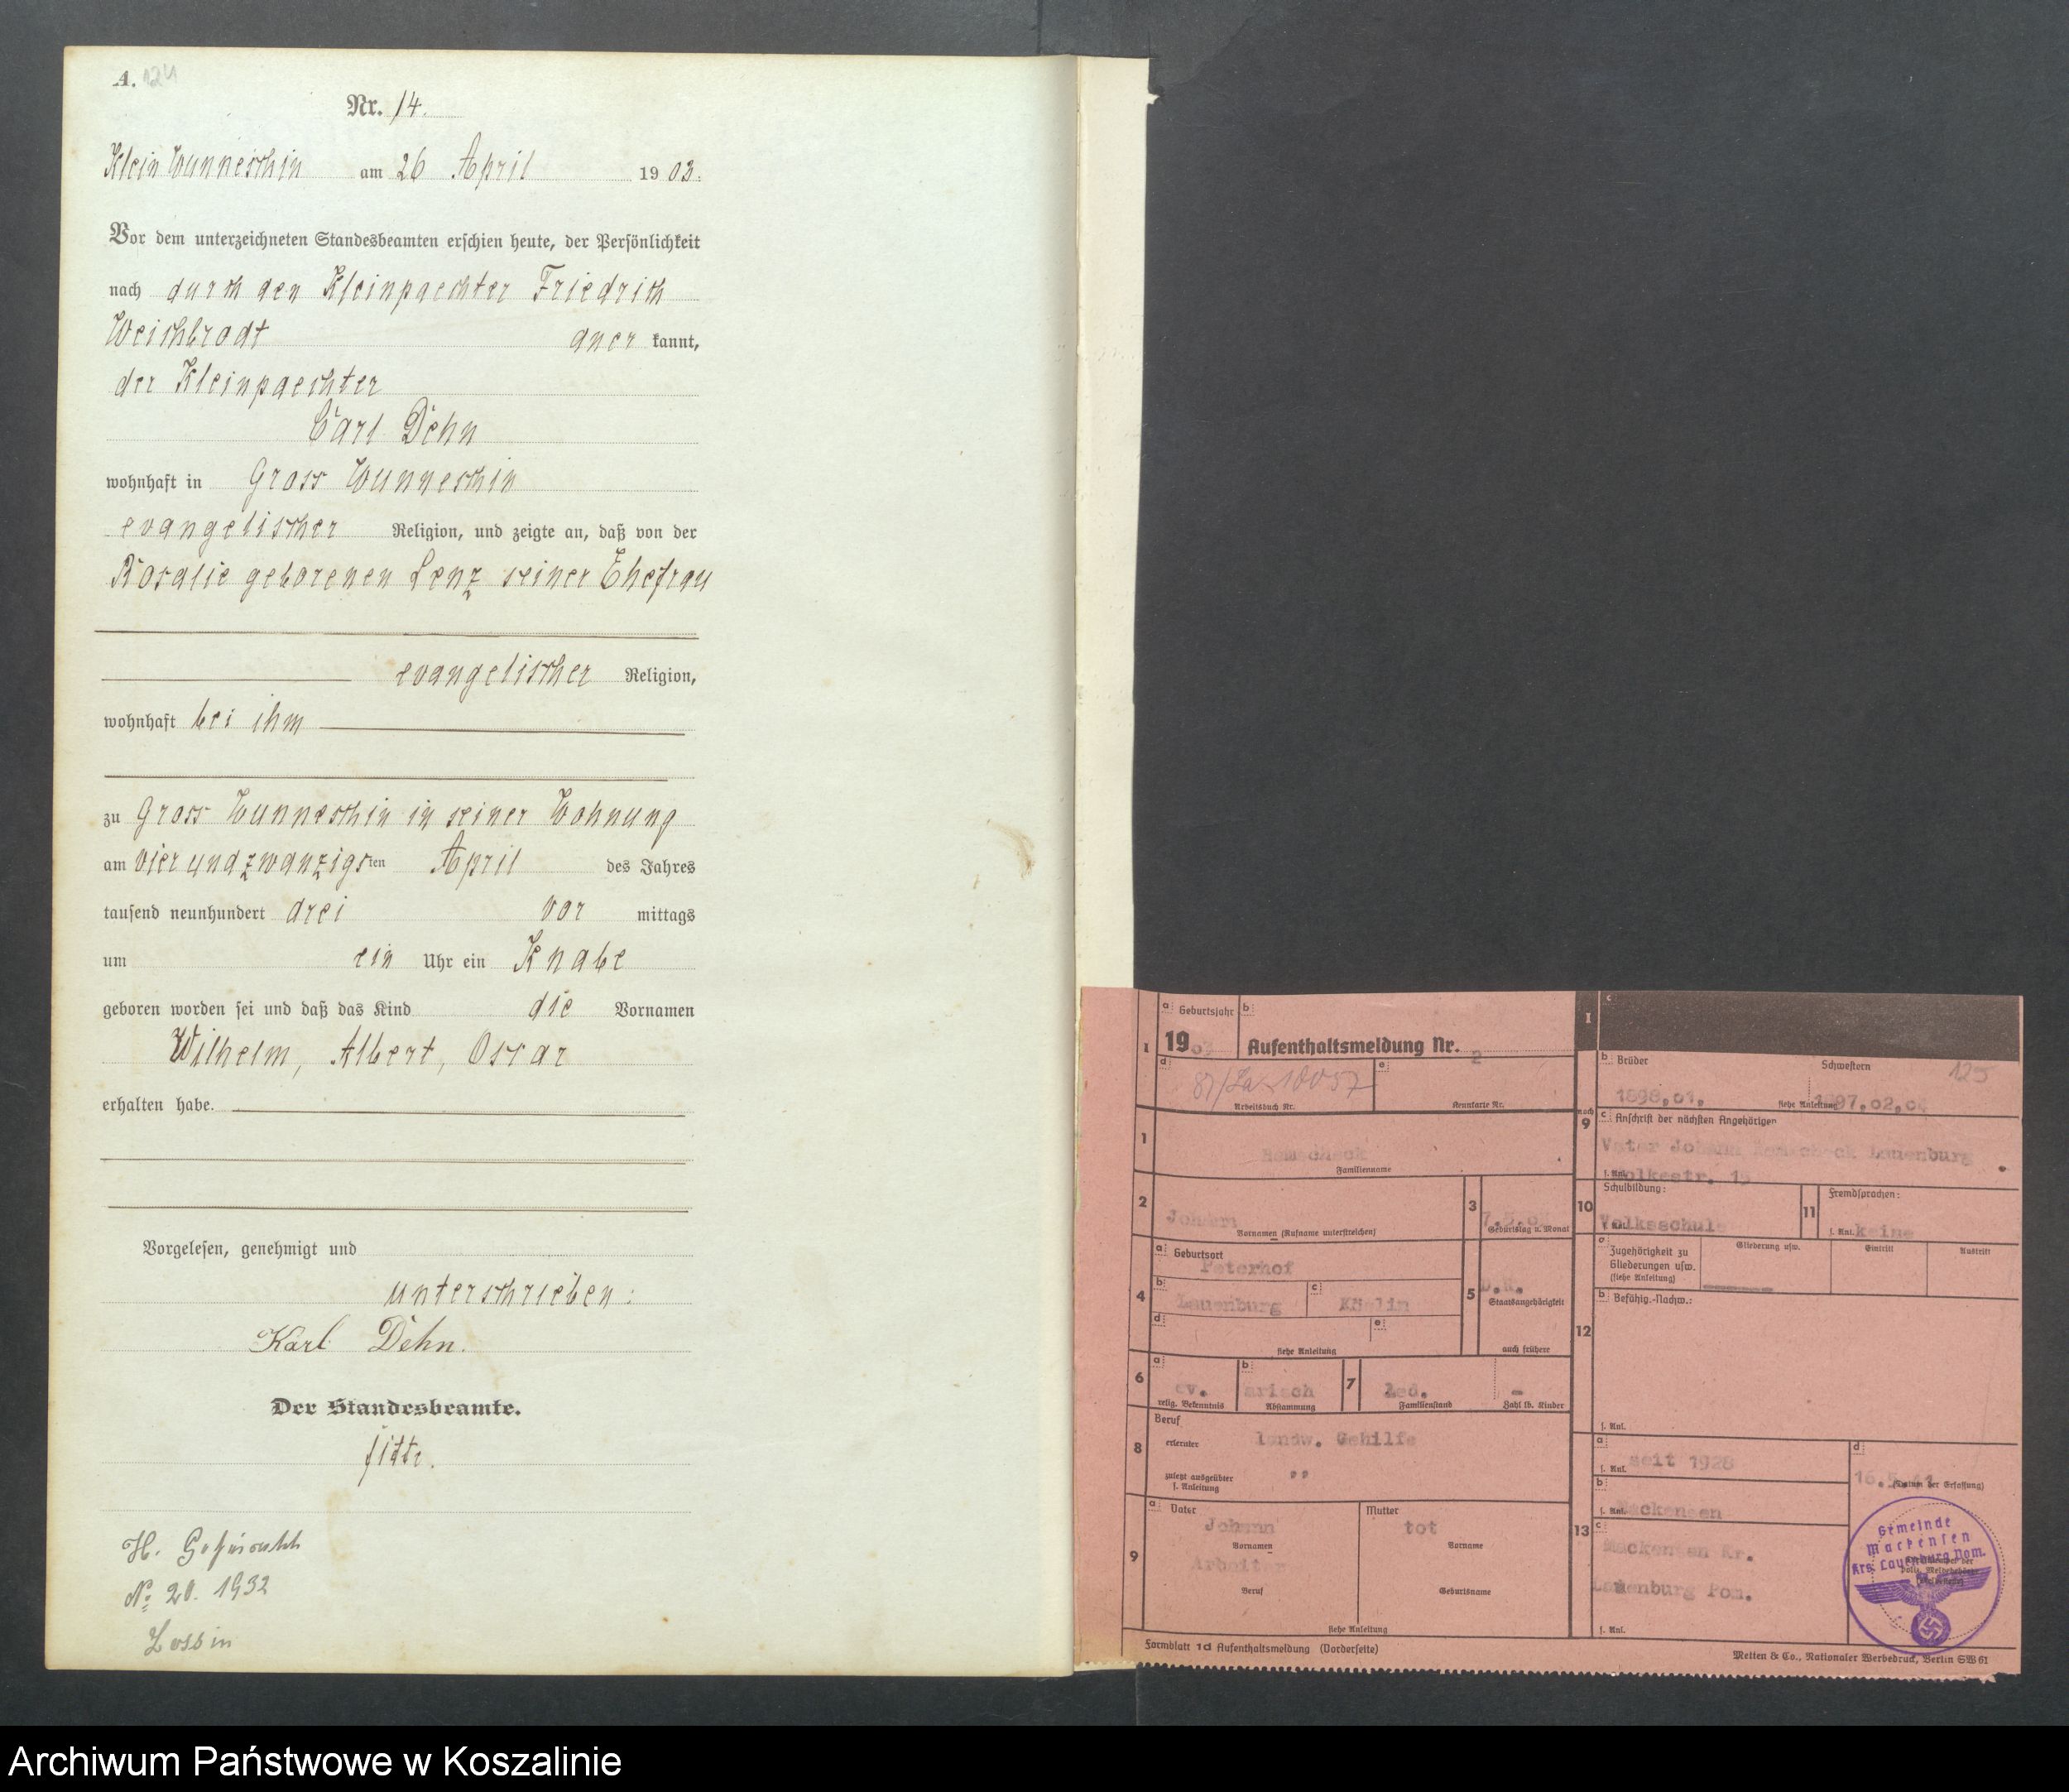 A. 124
Nr. 14.
Klein Wunneschin am 26 April 1903.
Vor dem unterzeichneten Standesbeamten erschien heute, der Persönlichkeit
nach durch den Kleinpaechter Friedrich
Weishbrodt anerkannt,
der Kleinpaechter
Carl Dehn
wohnhaft in Gross Wunneschin
evangelischer Religion, und zeigte an, daß von der
Rosalie geborenen Lenz seiner Ehefrau
evangelischer Religion,
wohnhaft bei ihm
zu Gross Wunneschin in seiner Wohnung
am vierundzwanzigsten April des Jahres
tausend neunhundert drei vor mittags
um ein Uhr ein Knabe
geboren worden sei und daß das Kind die Vornamen
Wilhelm, Albert, Oscar
erhalten habe.
Vorgelesen, genehmigt und
unterschrieben:
Karl Dehn.
Der Standesbeamte.
H.
No 20. 1932
Zossin
a Geburtsjahr b
I 1903 Aufenthaltsmeldung Nr. 2
d e
Arbeitsbuch Nr. Kennkarte Nr.
1
Familienname
2 Johann 3 7.5.03
Vornamen (Rufname unterstreichen) Geburtstag u. Monat
a Geburtsort
Peterhof
4 b Lauenburg c Köslin 5 D.R.
Staatsangehörigkeit
d e
siehe Anleitung auch frühere
6 a ev. b arisch 7 led. -
relig. Bekenntnis Abstammung Familienstand Zahl lb. Kinder
Beruf
8 erlernter landw. Gehilfe
zuletzt ausgeübter "
s. Anleitung
a Vater Mutter
Johann tot
Vornamen Vorname
9 Arbeiter
Beruf Geburtsname
siehe Anleitung
Formblatt 1d Aufenthaltsmeldung (Vorderseite)
I c
b Brüder Schwestern 125
1898,01, siehe Anleitung 1897,02,04
noch 9 c Anschrift der nächsten Angehörigen
Vater Johann Lauenburg
s. Anl. Molkestr. 15
10 Schulbildung: 11 Fremdsprachen:
Volksschule s. Anl. keine
a Zugehörigkeit zu Gliederung usw. Eintritt Austritt
Gliederungen usw.
(siehe Anleitung)
12 b Befähig.-Nachw.:
s. Anl.
a s. Anl. seit 1928 d
b 16.5.41 (Datum der Erfassung)
s. Anl. Mackensen
13 c Mackensen Kr.
Lauenburg Pom.
s. Anl.
Gemeinde
Mackensen
Krs. Lauenburg Pom.
Metten & Co., Nationaler Werbedruck, Berlin SW 61
Archiwum Państwowe w Koszalinie